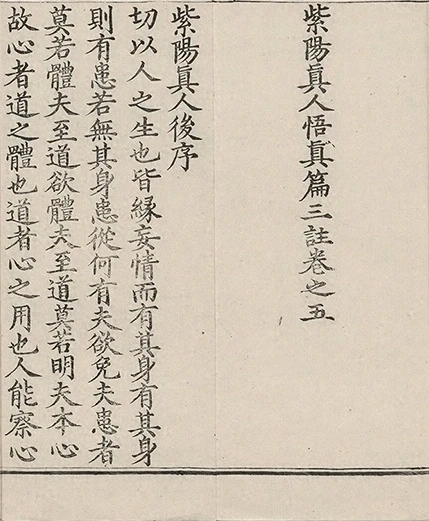 紫陽眞人悟眞篇三註卷之五
紫陽眞人後序
切以人之生也皆縁妄情而有其身有其身
則有患若無其身患從何有夫欲免夫患者
莫若體夫至道欲體夫至道莫若明夫本心
故心者道之體也道者心之用也人能察心